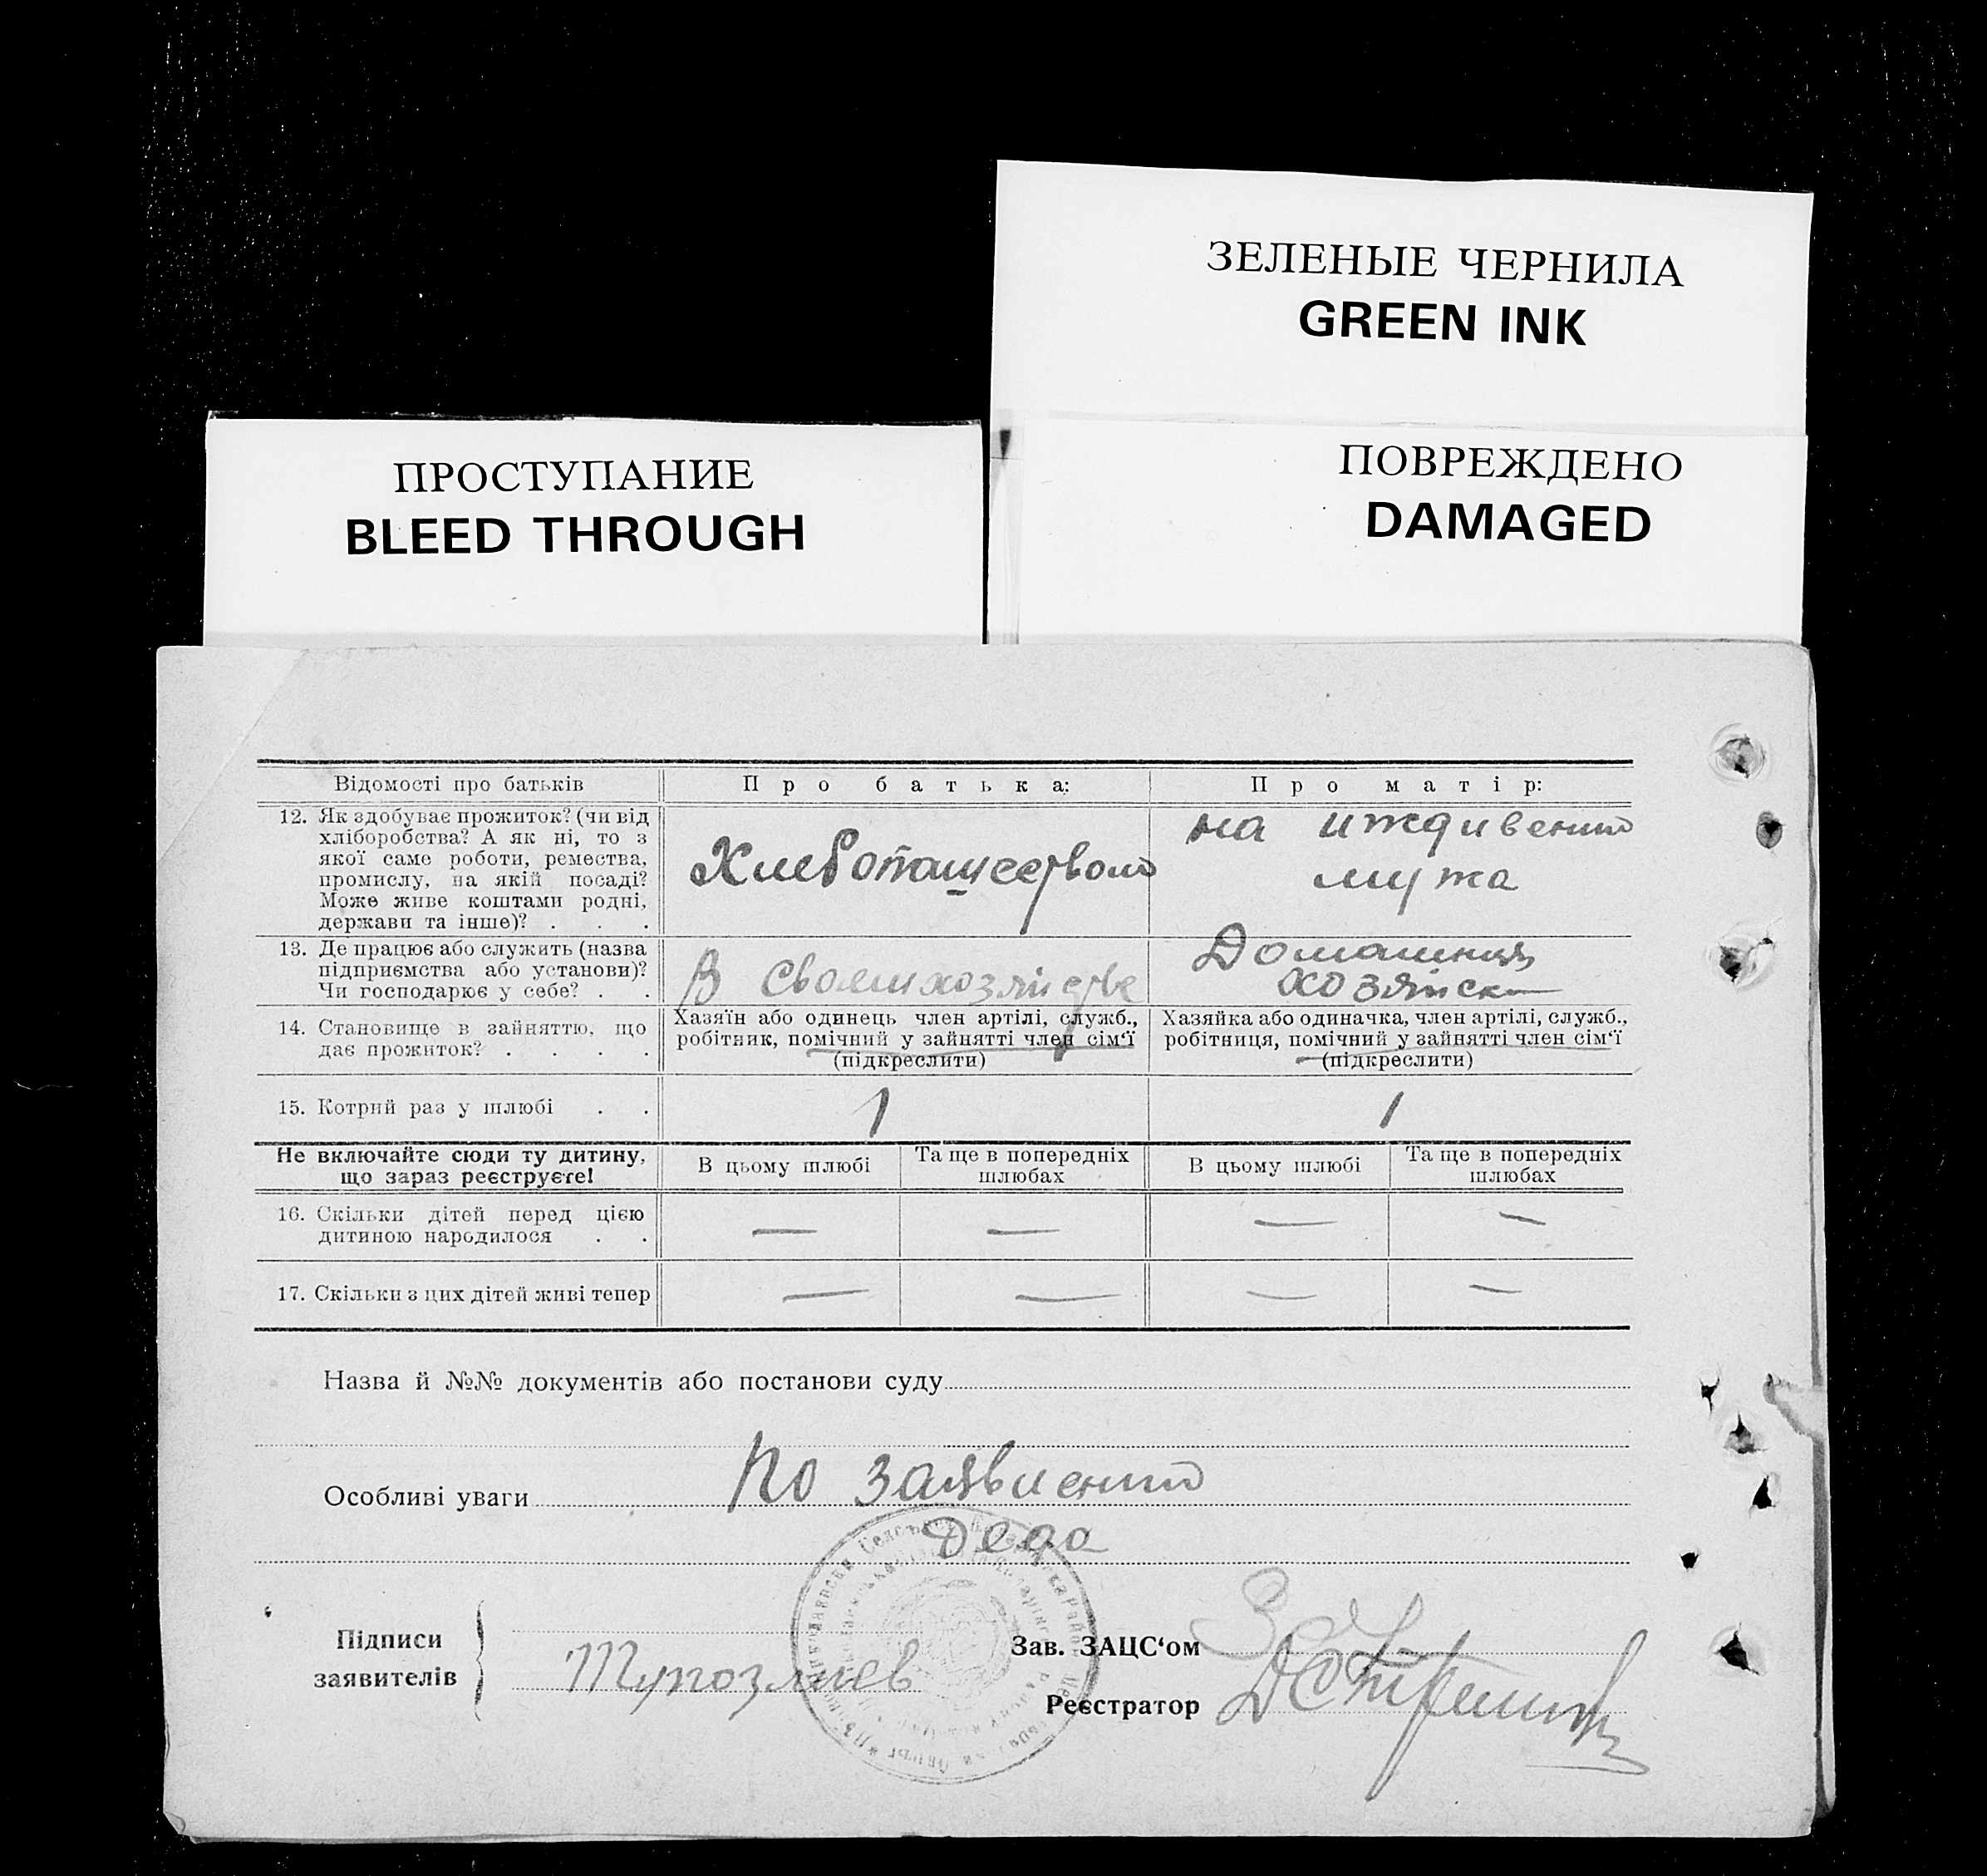 ЗЕЛЕНЫЕ ЧЕРНИЛА
GREEN INK
ПРОСТУПАНИЕ
BLEED THROUGH
ПОВРЕЖДЕНО
DAMAGED
Відомості про батьків
Про батька:
Про матір:
12. Як здобуває прожиток? (чи від
хліборобства? А як ні, то з
якої саме роботи, ремества,
промислу, на якій посаді?
Може живе коштами родні,
держави та інше)? . . .
Хлебопашеством
на иждивении
мужа
13. Де працює або служить (назва
підприємства або установи)?
Чи господарює у себе? . .
В своем хозяйстве
Домашняя
хозяйск
14. Становище в зайняттю, що
дає прожиток? . . . .
Хазяїн або одинець член артілі, служб.,
робітник, помічний у зайнятті член сім‘ї
(підкреслити)
Хазяйка або одиначка, член артілі, служб.,
робітниця, помічний у зайнятті член сім‘ї
(підкреслити)
15. Котрий раз у шлюбі . .
1
1
Не включайте сюди ту дитину,
що зараз реєструєте!
В цьому шлюбі
Та ще в попередніх
шлюбах
В цьому шлюбі
Та ще в попередніх
шлюбах
16. Скільки дітей перед цією
дитиною народилося . .
— — — —
17. Скільки з цих дітей живі тепер
— — — —
Назва й №№ документів або постанови суду
Особливі уваги
По заявлению
деда
Підписи
заявителів
Зав. ЗАЦС‘ом
Реєстратор